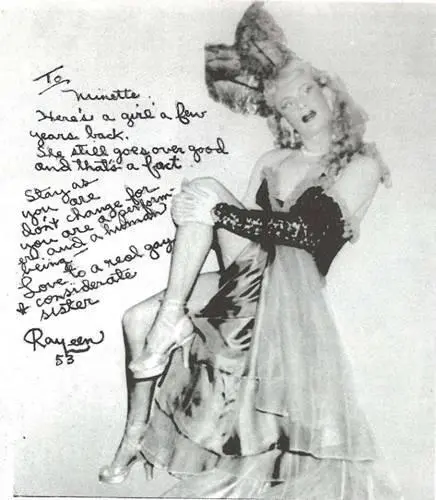 To
Minette
Here's a girl a few
years back.
She still goes over good
and that's a fact
Stay as
you are
don't change for
you are a perform-
er, and a human
being
Love to a real gay
& considerate
sister
Rayeen
53